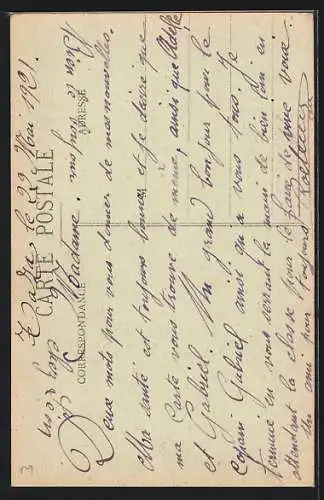 CARTE POSTALE
CORRESPONDANCE
ADRESSE
Taza le 29 Mai 1921.
Madame.
Deux mots pour vous donner de mes nouvelles.
Ma santé est toujours bonne et je désire que
ma carte vous trouve de même, ainsi que Adèle
et Gabriel. Un grand bonjour pour le
Copain Gabriel ainsi qu'a vous tous. Je
termine en vous serrant la main de bien loin en
attendant la classe pour le faire de vive voix.
Un ami pour toujours
Bien le bonjour
3